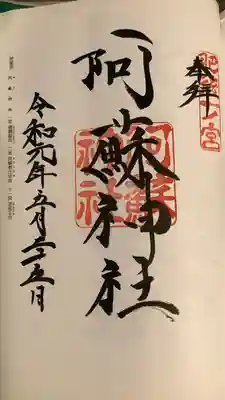 奉拝
肥後一ノ宮
阿蘇神社
阿蘇神社
令和元年五月二十五日